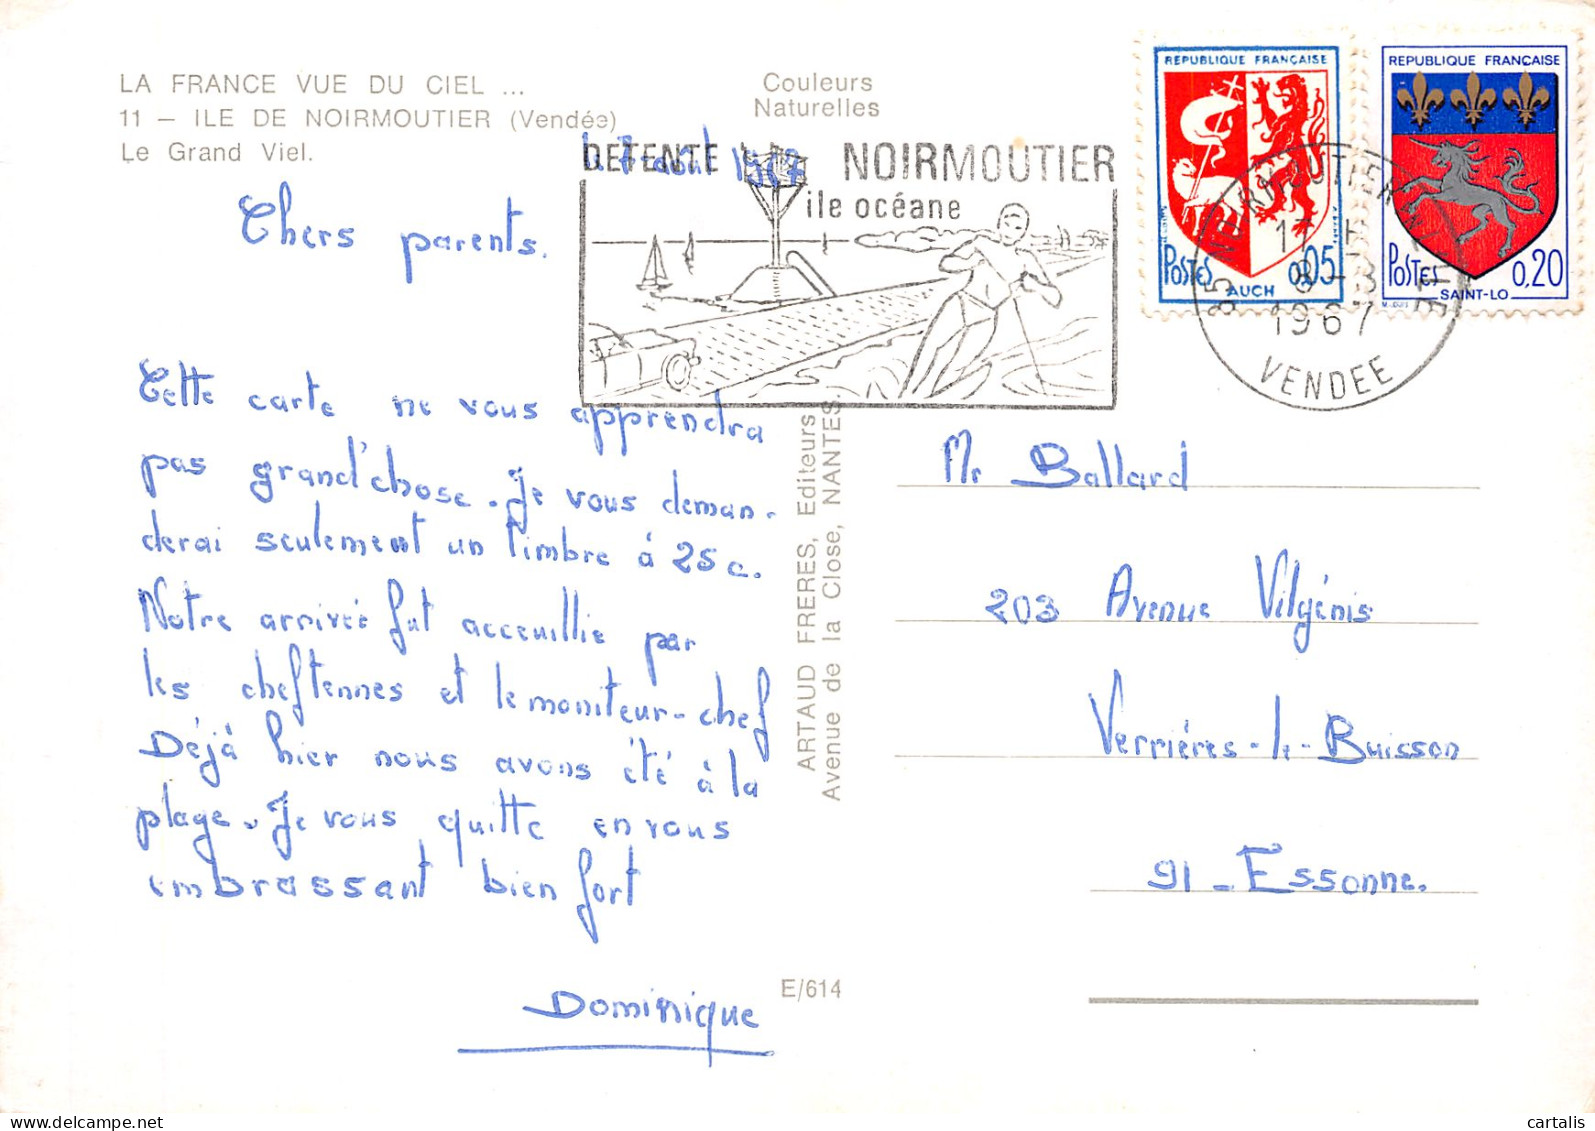 LA FRANCE VUE DU CIEL ...
11 – ILE DE NOIRMOUTIER (Vendée)
Le Grand Viel.
Couleurs
Naturelles
REPUBLIQUE FRANÇAISE
POSTES 0,05
AUCH
REPUBLIQUE FRANÇAISE
POSTES 0,20
SAINT-LO
DETENTE NOIRMOUTIER
ile océane
85 NOIRMOUTIER EN L'ILE
17 H
8-8
1967
VENDEE
août 1967
Chers parents.
Cette carte ne vous apprendra
pas grand'chose. Je vous deman-
derai seulement un timbre à 25 c.
Notre arrivée fut acceuillie par
les cheftennes et le moniteur-chef
Déjà hier nous avons été à la
plage. Je vous quitte en vous
embrassant bien fort
Dominique
ARTAUD FRERES, Editeurs
Avenue de la Close, NANTES.
E/614
Mr Ballard
203 Avenue Vilgénis
Verrières-le-Buisson
91 - Essonne.
cartalis